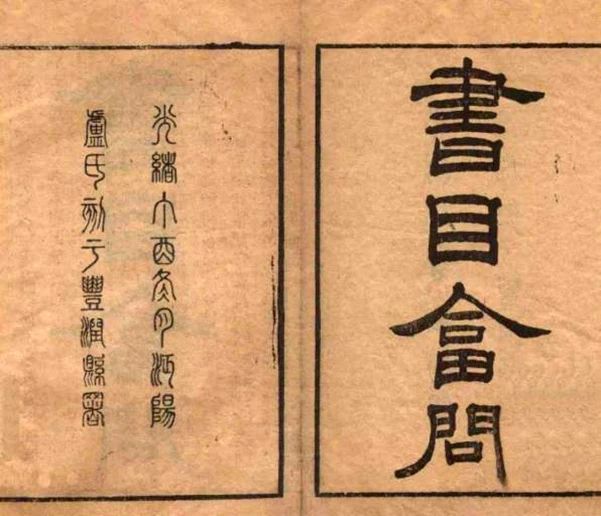 書目畣問
光緒丁酉冬月沔陽
盧氏刻于豐潤縣署